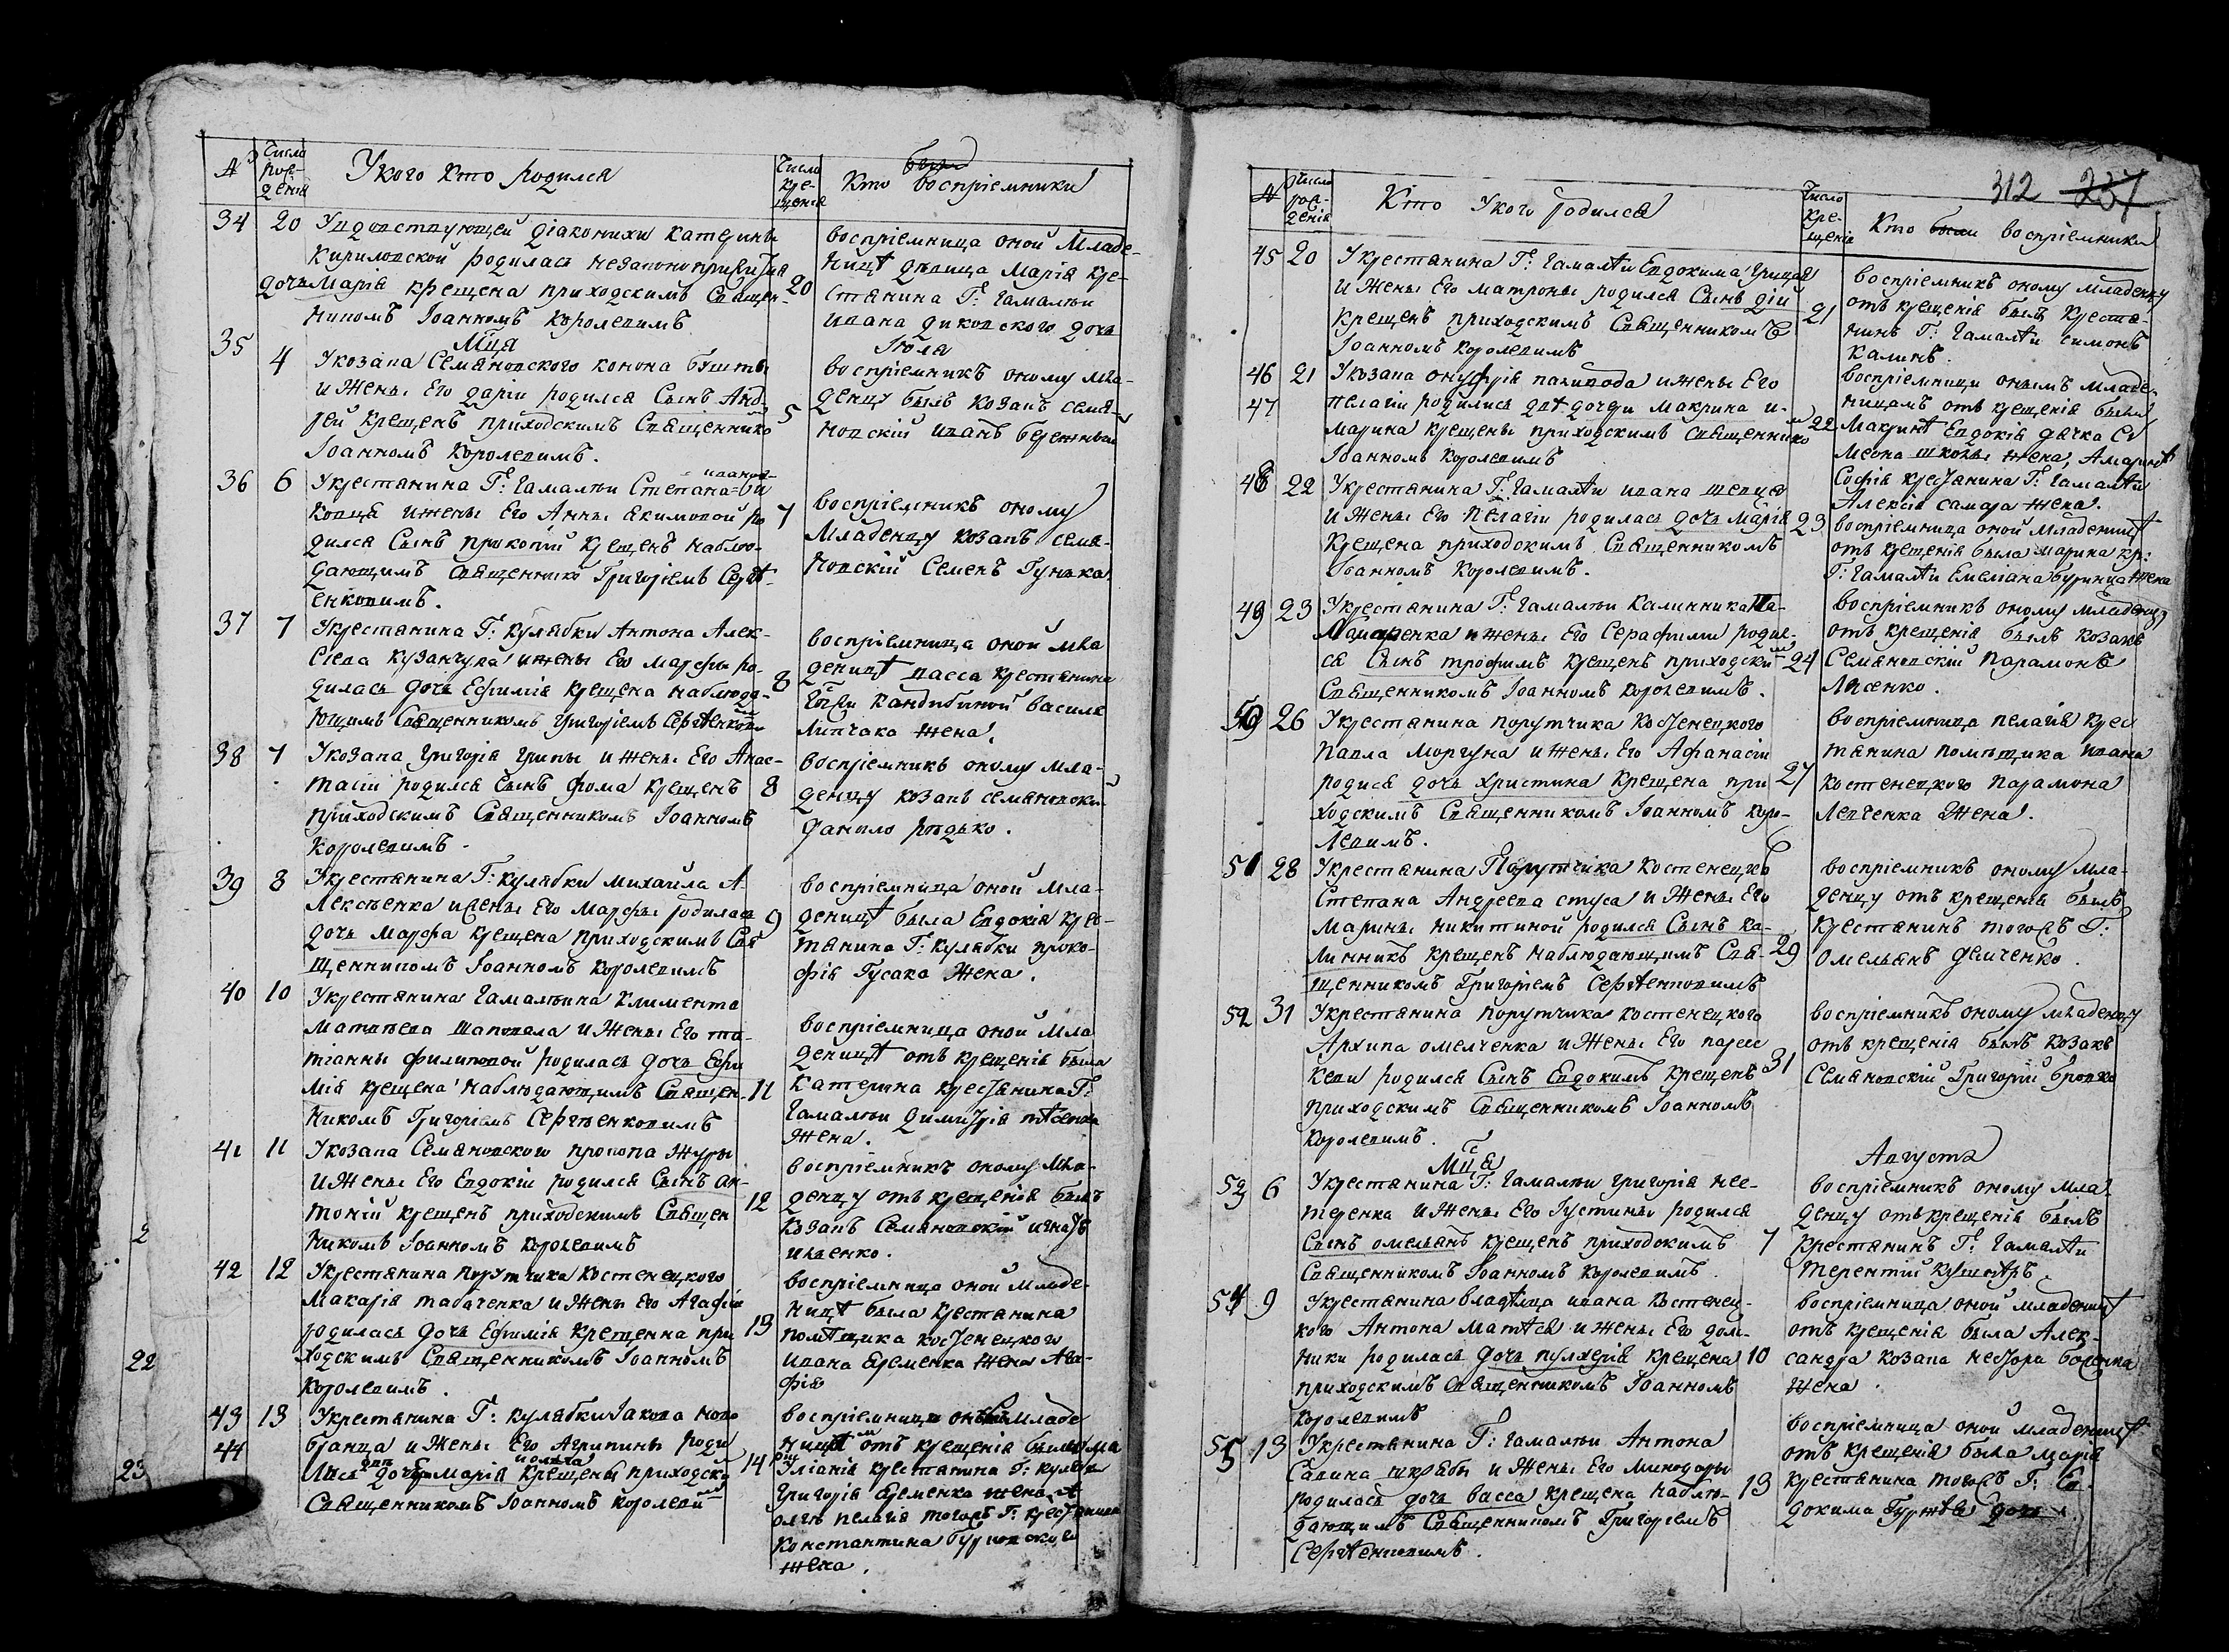 №
Число рож-
денія
У кого кто родился
Число
кре-
щенія
Кто были восприемники
34 20 У вдовствующей діаконихи Катерины
Кириловской родилась незаконноприжитая
дочь Марія крещена приходскимъ Священ-
никомъ Іоанномъ Королевимъ
20
восприемница оной младе-
ницѣ дѣвица Марія кре-
стянина Г: Гамалѣи
Ивана Диковского дочь
Мця Іюля
35 4 У козака Семяновского Конона
и жены Его Даріи родился Сынъ Анд-
рей крещенъ приходскимъ Священнико
Іоанномъ Королевимъ.
5
восприемникъ оному мла-
денцу былъ козакъ Семя-
новскій Иванъ Бережный
36 6 У крестянина Г: Гамалѣи Степана Иванов-
и жены Его Анны Якимовой ро
дился Сынъ Прокопій крещенъ наблю-
дающимъ Священнико Григоріемъ Сергѣ-
енковимъ.
7
восприемникъ оному
младенцу козакъ Семя-
новскій Семенъ Гунька
37 7 У крестянина Г: Кулябки Антона Алек-
сіева и жены Его Марфы ро-
дилась дочь Ефимія крещена наблюда-
ющимъ Священникомъ Григоріемъ Сергѣенковим
8
восприемница оной мла
деницѣ Васса крестянина
Гспжи Кандибиной Василя
Липчака жена.
38 7 У козака Григорія Грипы и жены Его Анас-
тасіи родился Сынъ Фома крещенъ
приходскимъ Священникомъ Іоанномъ
Королевимъ.
8
восприемникъ оному мла-
денцу козакъ Семяновскій
Данило Рѣдько.
39 8 У крестянина Г: Кулябки Михаила А-
лексѣенка и жены Его Марфы родилась
дочь Марфа крещена приходскимъ Свя
щенникомъ Іоанномъ Королевимъ
9
восприемница оной мла-
деницѣ была Евдокія крес-
тянина Г: Кулябки Проко-
фія Гусака жена.
40 10 У крестянина Гамалѣина Климента
Матвѣева Шаповала и жены Его Та-
тіанны Филиповой родилась дочь Ефи
мія крещена наблюдающимъ Священ-
никомъ Григоріемъ Сергѣенковимъ
11
восприемница оной мла
деницѣ отъ крещенія была
Катерина крестянина Г:
Гамалѣи Димитрія
жена.
41 11 У козака Семяновского Прокопа Журы
и жены Его Евдокіи родился Сынъ Ан-
тоній крещенъ приходскимъ Священ
никомъ Іоанномъ Королевимъ
12
восприемникъ оному мла-
денцу отъ крещенія былъ
козакъ Семяновскій Игнатъ
Ильенко.
42 12 У крестянина порутчика Костенецкого
Макарія Табаченка и жены Его Агафіи
родилась дочь Ефимія крещенна при
ходскимъ Священникомъ Іоанномъ
Королевимъ.
13
восприемница оной младе-
ницѣ была крестянина
помѣщика Костенецкого
Ивана Еременка жена Ага-
фія
43 13 У крестянина Г: Кулябки Іакова Ново
44 бранца и жены Его Агрипины роди
лись двѣ дочери Марія и Олена крещены приходски
Священникомъ Іоанномъ Королевим
14
восприемници онымъ младе
ницам отъ крещенія были Ма
ріи Уліанія крестянина Г: Кулябки
Григорія Еременка жена, а
Олени Пелагія того жъ Г: крестянина
Константина Бурковского
жена.
2
22
23
312 237
№
Число
рож-
денія
Кто у кого родился
Число
кре-
щенія
Кто были восприемники
45 20 У крестянина Г: Гамалѣи Евдокима Грицая
и жены Его Матроны родился Сынъ Дій
крещенъ приходскимъ Священникомъ
Іоанномъ Королевимъ
21
восприемникъ оному младенцу
отъ крещенія былъ крестя-
нинъ Г: Гамалѣи Симонъ
Калинъ.
46 21 У козака Онуфрія Пакивода и жены Его
47 Пелагіи родились двѣ дочери Макрина и
Марина крещены приходскимъ Священнико
Іоанномъ Королевимъ
22
восприемници онымъ младе-
ницамъ отъ крещенія были
Макринѣ Евдокія дячка Си
меона жена, а Маринѣ
Софія крестянина Г: Гамалѣи
Алексія Самара жена.
48 22 У крестянина Г: Гамалѣи Ивана Шевця
и жены Его Пелагіи родилась дочь Марія
крещена приходскимъ Священникомъ
Іоанномъ Королевимъ.
23
восприемница оной младеницѣ
отъ крещенія была Марина кр:
Г: Гамалѣи Емеліана жена
49 23 У крестянина Г: Гамалѣи Калинника Па-
ламаренка и жены Его Серафими родил-
ся Сынъ Трофимъ крещенъ приходским
Священникомъ Іоанномъ Королевимъ.
24
восприемникъ оному младенцу
отъ крещенія былъ козакъ
Семяновскій Парамонъ
Лисенко.
50 26 У крестянина порутчика Костенецкого
Павла Моргуна и жены Его Афанасіи
родися дочь Христина крещена при
ходскимъ Священникомъ Іоанномъ Коро-
левимъ.
27
восприемница Пелагія крес
тянина помѣщика Ивана
Костенецкого Парамона
Левченка жена.
51 28 У крестянина Порутчика Костенецко
Степана Андреева Стуса и жены Его
Марины Никитиной родился Сынъ Ка-
линникъ крещенъ наблюдающимъ Свя-
щенникомъ Григоріемъ Сергѣенковимъ
29
восприемникъ оному мла-
денцу отъ крещенія былъ
крестянинъ того жъ Г:
Омелянъ Демченко.
52 31 У крестянина порутчика Костенецкого
Архипа Омелченка и жены Его Парас
кеви родился Сынъ Евдокимъ крещенъ
приходскимъ Священникомъ Іоанномъ
Королевимъ.
31
восприемникъ оному младенцу
отъ крещенія былъ козакъ
Семяновскій Григорій Бровко
Мця Августа
53 6 У крестянина Г: Гамалѣи Григорія Нес-
теренка и жены Его Іустины родился
Сынъ Омелянъ крещенъ приходскимъ
Священникомъ Іоанномъ Королевимъ.
7
восприемникъ оному мла-
денцу отъ крещенія былъ
крестянинъ Г: Гамалѣи
Терентій Кушниръ.
54 9 У крестянина владѣлца Ивана Костенец-
кого Антона Матѣся и жены Его Дом-
ники родилась дочь Пулхерія крещена
приходскимъ Священникомъ Іоанномъ
Королевимъ
10
восприемница оной младеницѣ
отъ крещенія была Алек-
сандра козака Нестора
жена.
55 13 У крестянина Г: Гамалѣи Антона
Савина Шкрябы и жены Его Минодоры
родилась дочь Васса крещена наблю-
дающимъ Священникомъ Григоріемъ
Сергѣенковимъ.
13
восприемница оной младеницѣ
отъ крещенія была Марія
крестянина того жъ Г: Ев-
докима дочь.